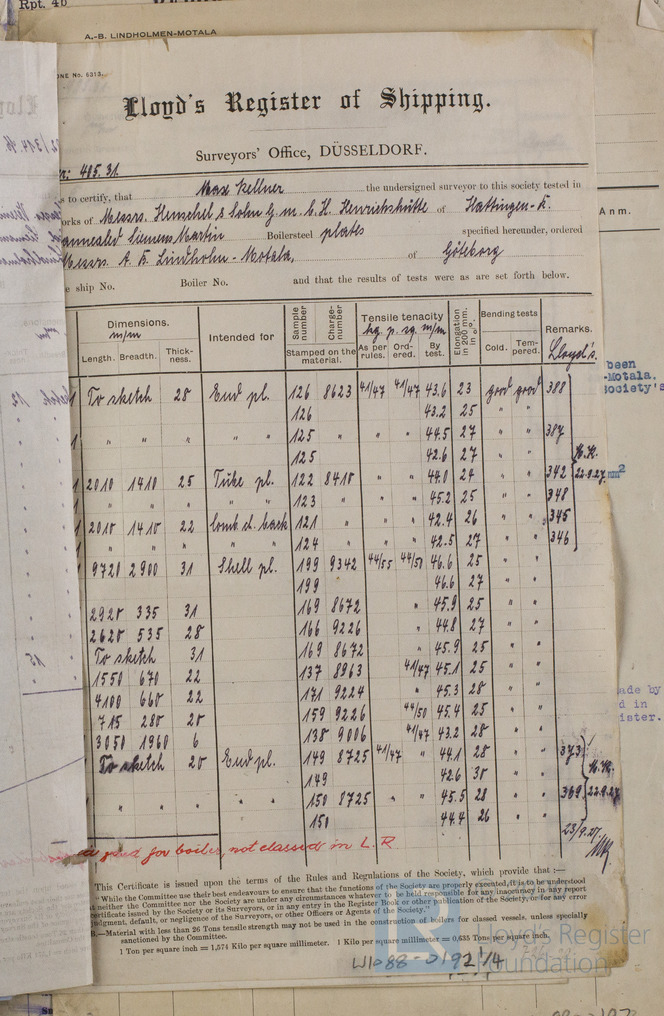 Rpt. 4b
A.-B. LINDHOLMEN-MOTALA
ONE No. 6313.
Lloyd's Register of Shipping.
Surveyors' Office, DÜSSELDORF.
485.31.
s to certify, that Max Kellner the undersigned surveyor to this society tested in
orks of Messrs. Henschel & Sohn G.m.b.H. Henrichshütte of Hattingen-R.
annealed Siemens Martin Boilersteel plates specified hereunder, ordered
Messrs. A. B. Lindholm-Motala, of Göteborg
e ship No. Boiler No. and that the results of tests were as are set forth below.
Dimensions. m/m Intended for Sample number Charge-number Tensile tenacity kg. p. sq. m/m Elongation in 200 mm. in %. Bending tests Remarks.
Length. Breadth. Thick-ness. Stamped on the material. As per rules. Ord-ered. By test. Cold. Tem-pered. Lloyd's.
1 To sketch 28 End pl. 126 8623 41/47 41/47 43.6 23 good good 388
126 43.2 25 " "
1 " " " " " 125 " " " 44.5 27 " " 387
125 42.6 27 " "
1 2010 1410 25 Tube pl. 122 8418 " " 44.0 24 " " 342 22.9.27
1 " " " " " 123 " " " 45.2 25 " " 348
1 2010 1410 22 Comb. ch. back 121 " " " 42.4 26 " " 345
1 " " " " " 124 " " " 42.5 27 " " 346
1 9720 2900 31 Shell pl. 199 9342 44/55 44/50 46.6 25 " "
199 46.6 27 " "
2920 335 31 169 8672 " 45.9 25 " "
2620 535 28 166 9226 " 44.8 27 " "
To sketch 31 169 8672 " 45.9 25 " "
1550 670 22 137 8963 41/47 45.1 25 " "
4100 660 22 171 9224 " 45.3 28 " "
715 280 20 159 9226 44/50 45.4 25 " "
3050 1960 6 138 9006 41/47 43.2 28 " "
To sketch 20 End pl. 149 8725 41/47 " 44.1 28 " " 373
149 42.6 30 " "
" " " " " 150 8725 " " 45.5 28 " " 369 22.9.27
150 44.4 26 " "
23/9.27.
for boiler, not classed in L.R
This Certificate is issued upon the terms of the Rules and Regulations of the Society, which provide that :—
"While the Committee use their best endeavours to ensure that the functions of the Society are properly executed, it is to be understood
neither the Committee nor the Society are under any circumstances whatever to be held responsible for any inaccuracy in any report
certificate issued by the Society or its Surveyors, or in any entry in the Register Book or other publication of the Society, or for any error
judgment, default, or negligence of the Surveyors, or other Officers or Agents of the Society."
—Material with less than 26 Tons tensile strength may not be used in the construction of boilers for classed vessels, unless specially
sanctioned by the Committee.
1 Ton per square inch = 1,574 Kilo per square millimetre. 1 Kilo per square millimetre = 0,635 Tons per square inch.
W1088-0192 1/4
Lloyd's Register
Foundation
Anm.
been
-Motala.
Society's
mm2
ade by
d in
ister.